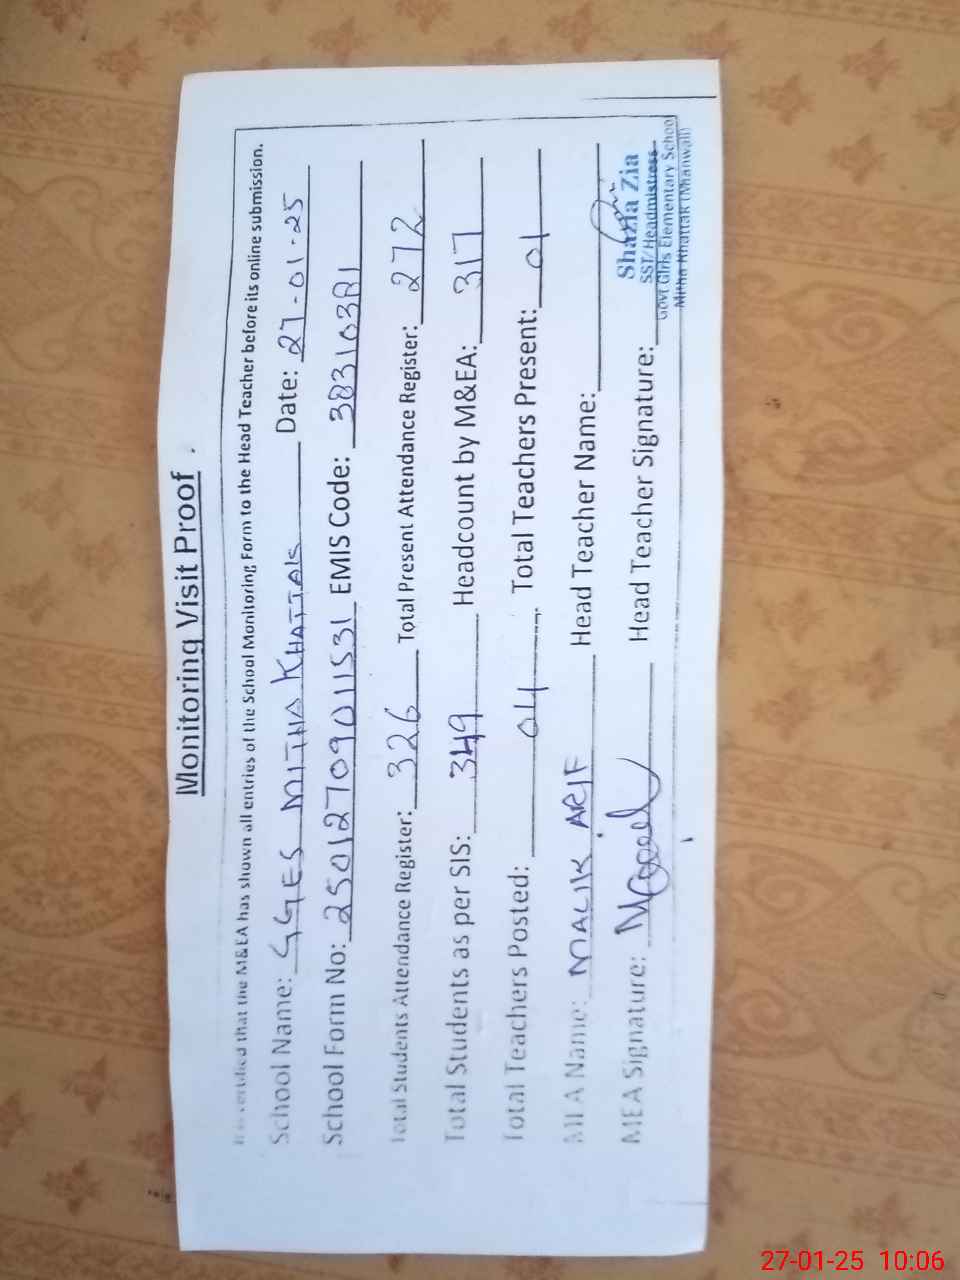 Monitoring Visit Proof
It is certified that the M&EA has shown all entries of the School Monitoring Form to the Head Teacher before its online submission.
School Name: GGES MITHA KHATTAK Date: 27-01-25
School Form No: 25012709011531 EMIS Code: 38310381
Total Students Attendance Register: 326 Total Present Attendance Register: 272
Total Students as per SIS: 349 Headcount by M&EA: 317
Total Teachers Posted: 04 Total Teachers Present: 01
MEA Name: MALIK ARIF Head Teacher Name:
MEA Signature: Head Teacher Signature:
Shazia Zia
SST/Headmistress
Govt Girls Elementary School
Mitha Khattak (Mianwali)
27-01-25 10:06